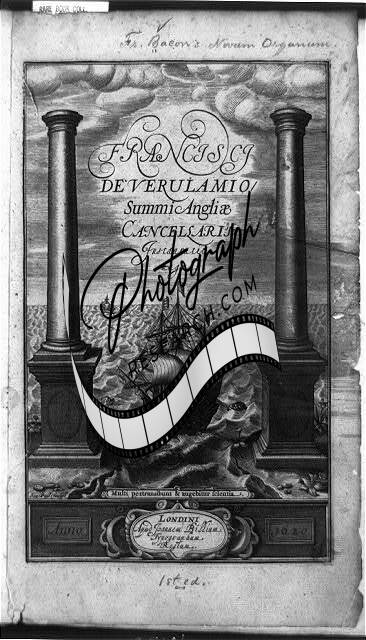 RARE BOOK COLL.
Fr. Bacon's Novum Organum.
FRANCISCI
DE VERULAMIO/
Summi Angliæ
CANCELSARII
Photograph
RESEARCH.COM
Multi pertransibunt & augebitur scientia.
LONDINI
Apud Joannem Billium
Typographum
Regium.
Anno
1620
1st ed.